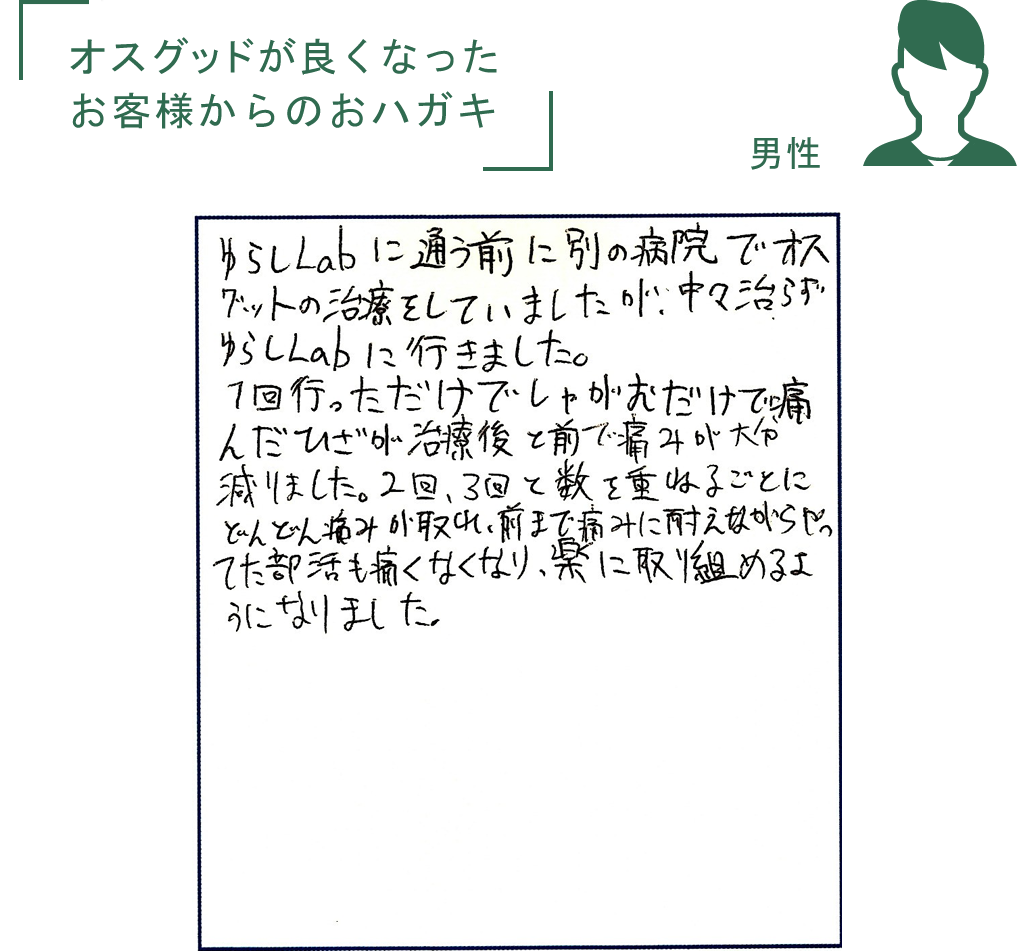 オスグッドが良くなった
お客様からのおハガキ
男性
ゆらしLabに通う前に別の病院でオス
グットの治療をしていましたが、中々治らず
ゆらしLabに行きました。
1回行っただけでしゃがむだけで痛
んだひざが治療後と前で痛みが大分
減りました。2回、3回と数を重ねるごとに
どんどん痛みが取れ、前まで痛みに耐えながらやっ
てた部活も痛くなくなり、楽に取り組めるよ
うになりました。